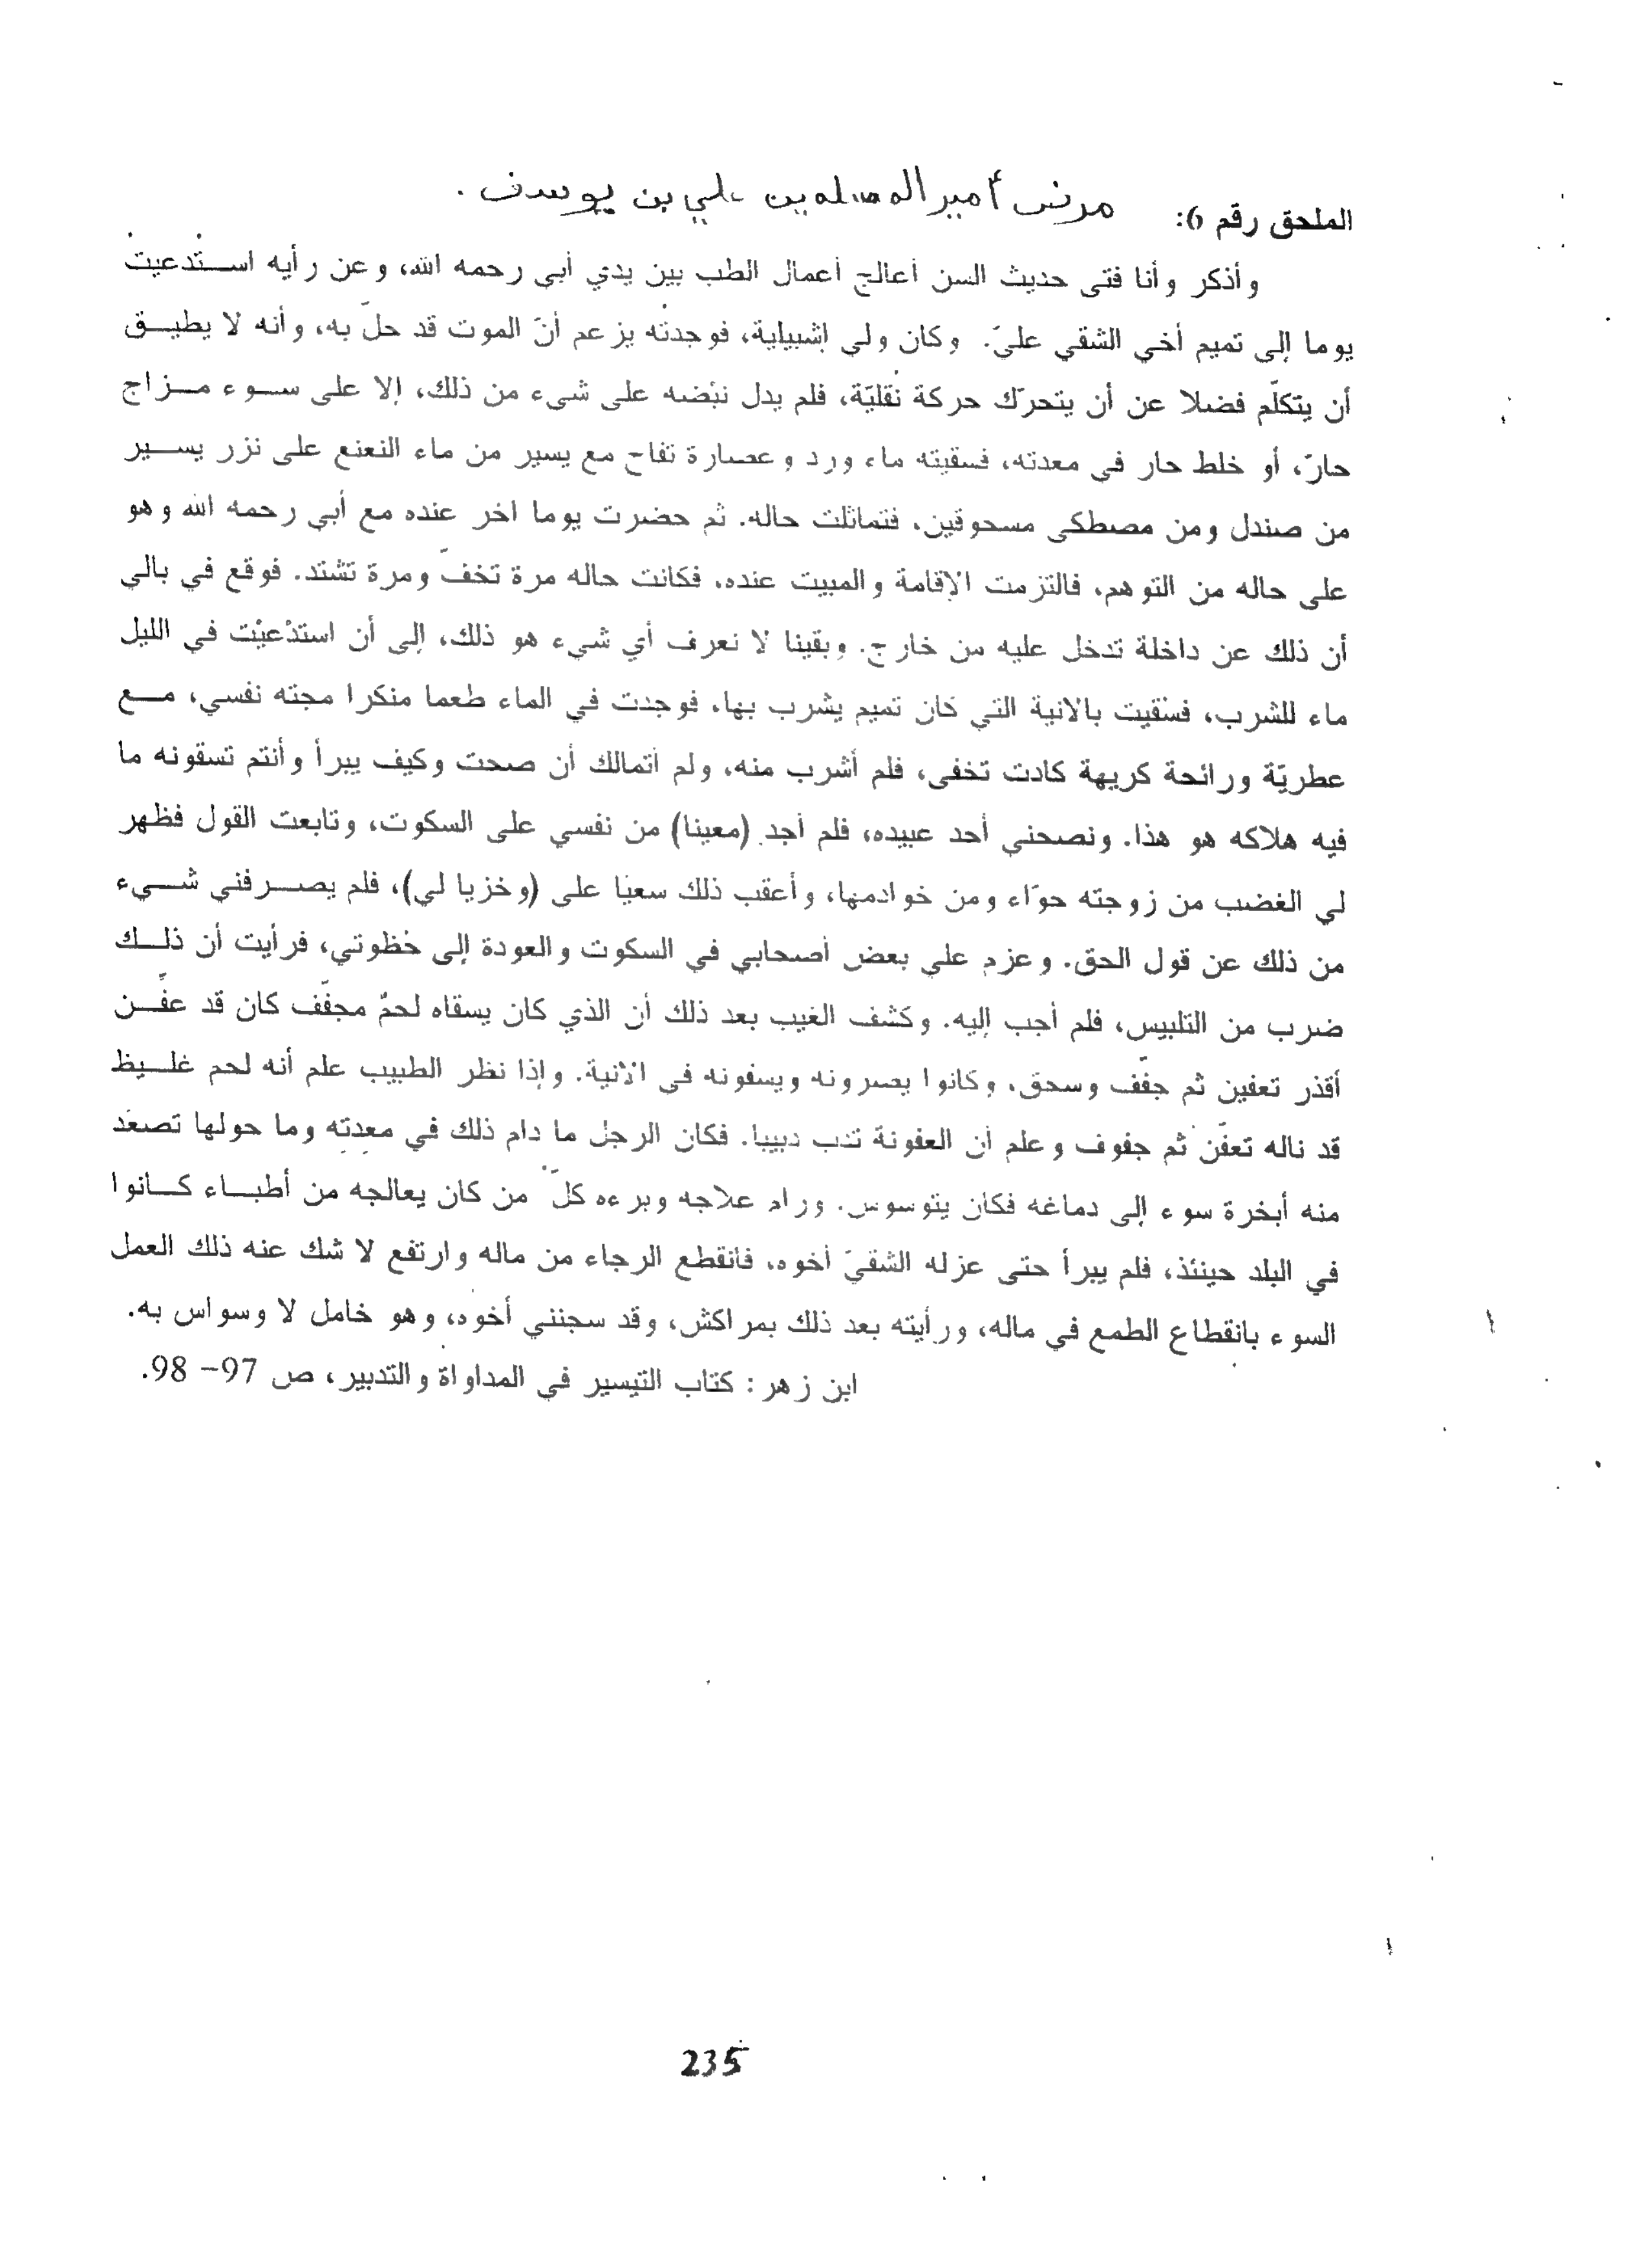 الملحق رقم 6: مرض أمير المسلمين علي بن يوسف.
وأذكر وأنا فتى حديث السن أعالج أعمال الطب بين يدي أبي رحمه الله، وعن رأيه استُدعيتُ
يوما إلى تميم أخي الشقي عليّ. وكان ولي إشبيلية، فوجدتُه يزعم أنّ الموت قد حلّ به، وأنه لا يطيق
أن يتكلّم فضلا عن أن يتحرّك حركة نُقليّة، فلم يدل نبْضه على شيء من ذلك، إلا على سوء مزاج
حارّ، أو خلط حار في معدته، فسقيته ماء ورد وعصارة تفاح مع يسير من ماء النعنع على نزر يسير
من صندل ومن مصطكى مسحوقين، فتماثلت حاله. ثم حضرت يوما اخر عنده مع أبي رحمه الله وهو
على حاله من التوهم، فالتزمت الإقامة والمبيت عنده، فكانت حاله مرة تخفّ ومرة تشتد. فوقع في بالي
أن ذلك عن داخلة تدخل عليه من خارج. وبقينا لا نعرف أي شيء هو ذلك، إلى أن استدْعيْت في الليل
ماء للشرب، فسُقيت بالانية التي كان تميم يشرب بها، فوجدت في الماء طعما منكرا مجته نفسي، مع
عطريّة ورائحة كريهة كادت تخفى، فلم أشرب منه، ولم أتمالك أن صحت وكيف يبرأ وأنتم تسقونه ما
فيه هلاكه هو هذا. ونصحني أحد عبيده، فلم أجد (معينا) من نفسي على السكوت، وتابعت القول فظهر
لي الغضب من زوجته حوّاء ومن خوادمها، وأعقب ذلك سعيًا على (وخزيا لي)، فلم يصرفني شيء
من ذلك عن قول الحق. وعزم علي بعض أصحابي في السكوت والعودة إلى خظوتي، فرأيت أن ذلك
ضرب من التلبيس، فلم أجب إليه. وكشف الغيب بعد ذلك أن الذي كان يسقاه لحمٌ مجفّف كان قد عفّن
أقذر تعفين ثم جفّف وسحق، وكانوا يصرونه ويسفونه في الانية. وإذا نظر الطبيب علم أنه لحم غليظ
قد ناله تعفّن ثم جفوف وعلم أن العفونة تدب دبيبا. فكان الرجل ما دام ذلك في معدته وما حولها تصعَد
منه أبخرة سوء إلى دماغه فكان يتوسوس. ورام علاجه وبرءه كلّ من كان يعالجه من أطباء كانوا
في البلد حينئذ، فلم يبرأ حتى عزله الشقيّ أخوه، فانقطع الرجاء من ماله وارتفع لا شك عنه ذلك العمل
السوء بانقطاع الطمع في ماله، ورأيته بعد ذلك بمراكش، وقد سجنني أخوه، وهو خامل لا وسواس به.
ابن زهر: كتاب التيسير في المداواة والتدبير، ص 97- 98.
235